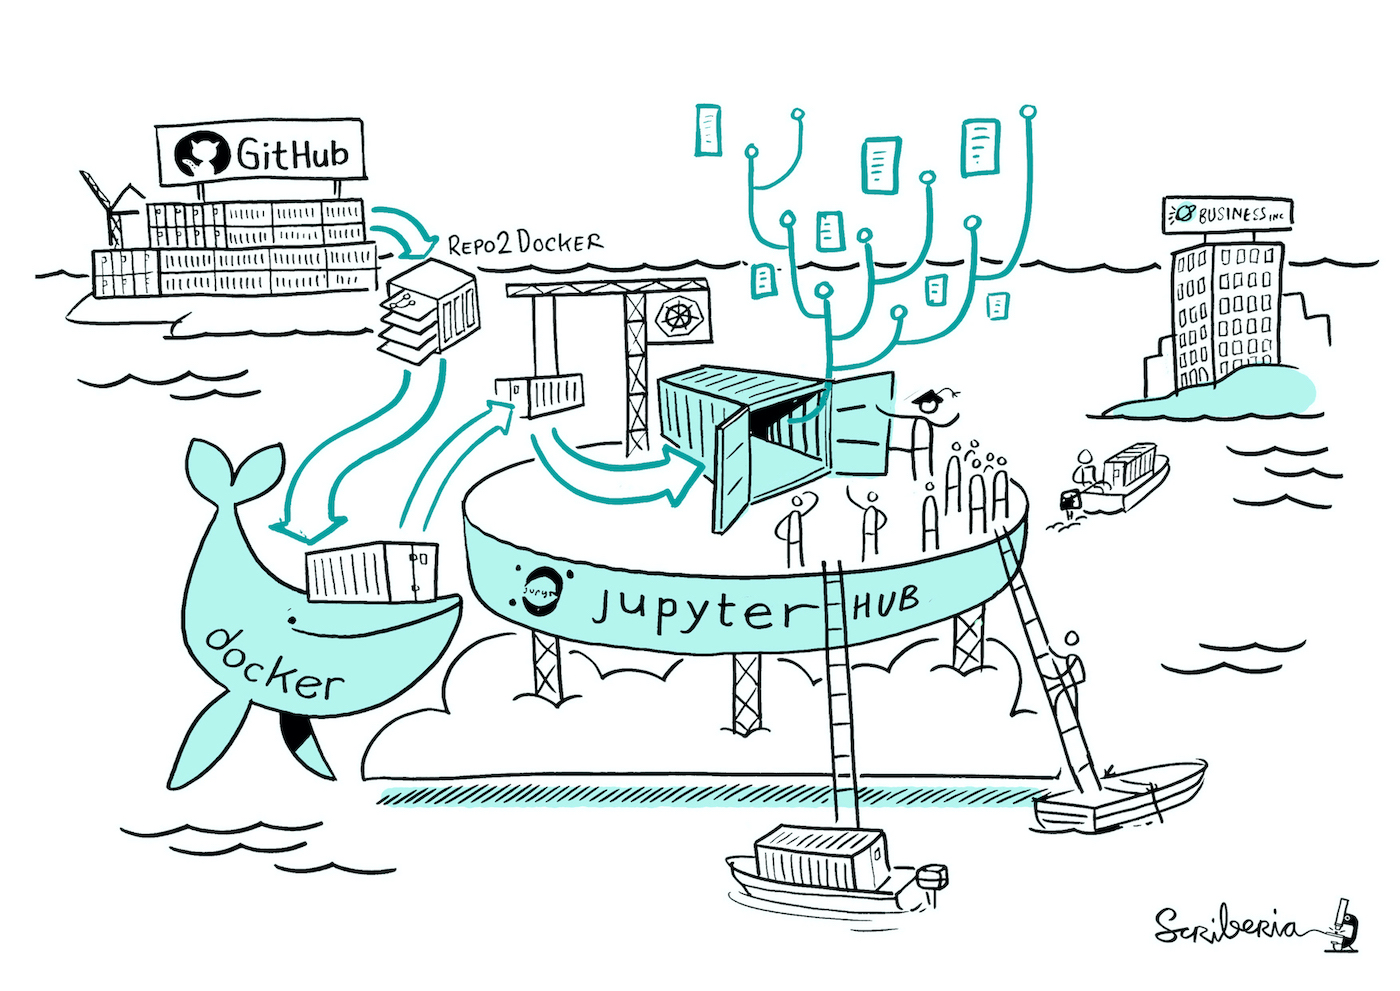 GitHub
REPO2DOCKER
BUSINESS INC
docker
jupyter
jupyter HUB
Scriberia